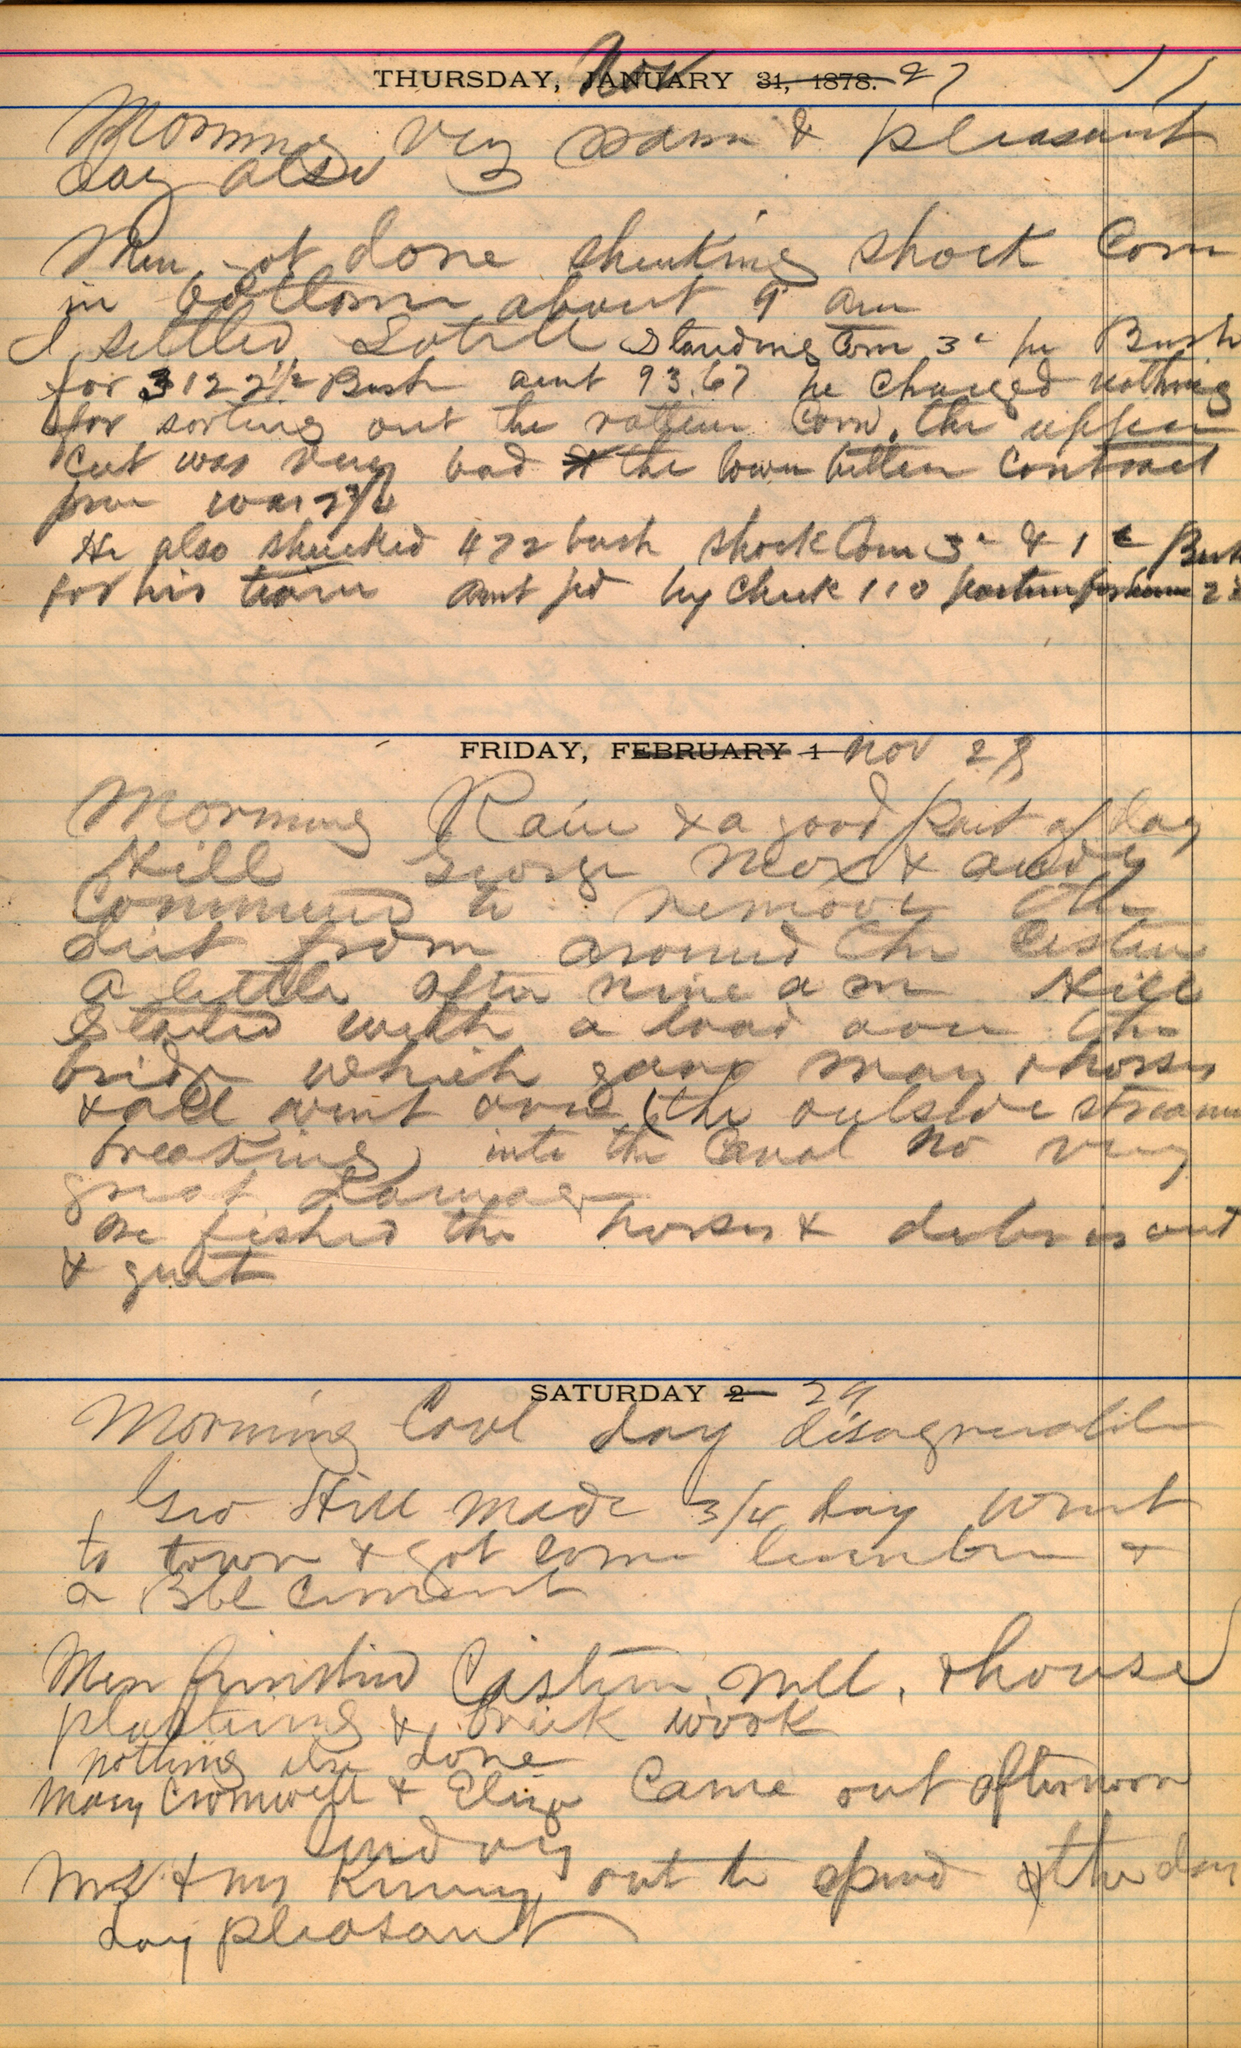 THURSDAY, JANUARY 31, 1878. Nov 27 11
Morning very warm & pleasant
day also
Men got done shucking shock Corn
in bottom about 9 am
I settled Standing Corn 3c pr Bush
for 3122 1/2 Bush amt 93.67 he Charged nothing
for sorting out the rotten Corn, the upper
Cut was very bad & the lower better Contract
price was 2 3/4
He also shucked 472 bush shock Corn 3c & 1c Bush
for his team Amt pd by Check 110 pasture for horse 2
FRIDAY, FEBRUARY 1 Nov 28
Morning Rain & a good part of day
Hill George Mox & andy
Commenced to remove the
dirt from around the Cistern
a little after nine a m Hill
Started with a load over the
bridge which gave way & horses
& all went over (the outside streamer
breaking) into the Canal no very
great damage
We fished the horses & debris out
& quit
SATURDAY 2 29
Morning Cool day disagreeable
Geo Hill made 3/4 day went
to town & got some lumber &
a Bbl Cement
Men finished Cistern well, & house
plastering & brick work
nothing else done
Mary Cromwell & Eliza Came out afternoon
Sunday
Mr & Mrs Kinney out to spend the day
day pleasant